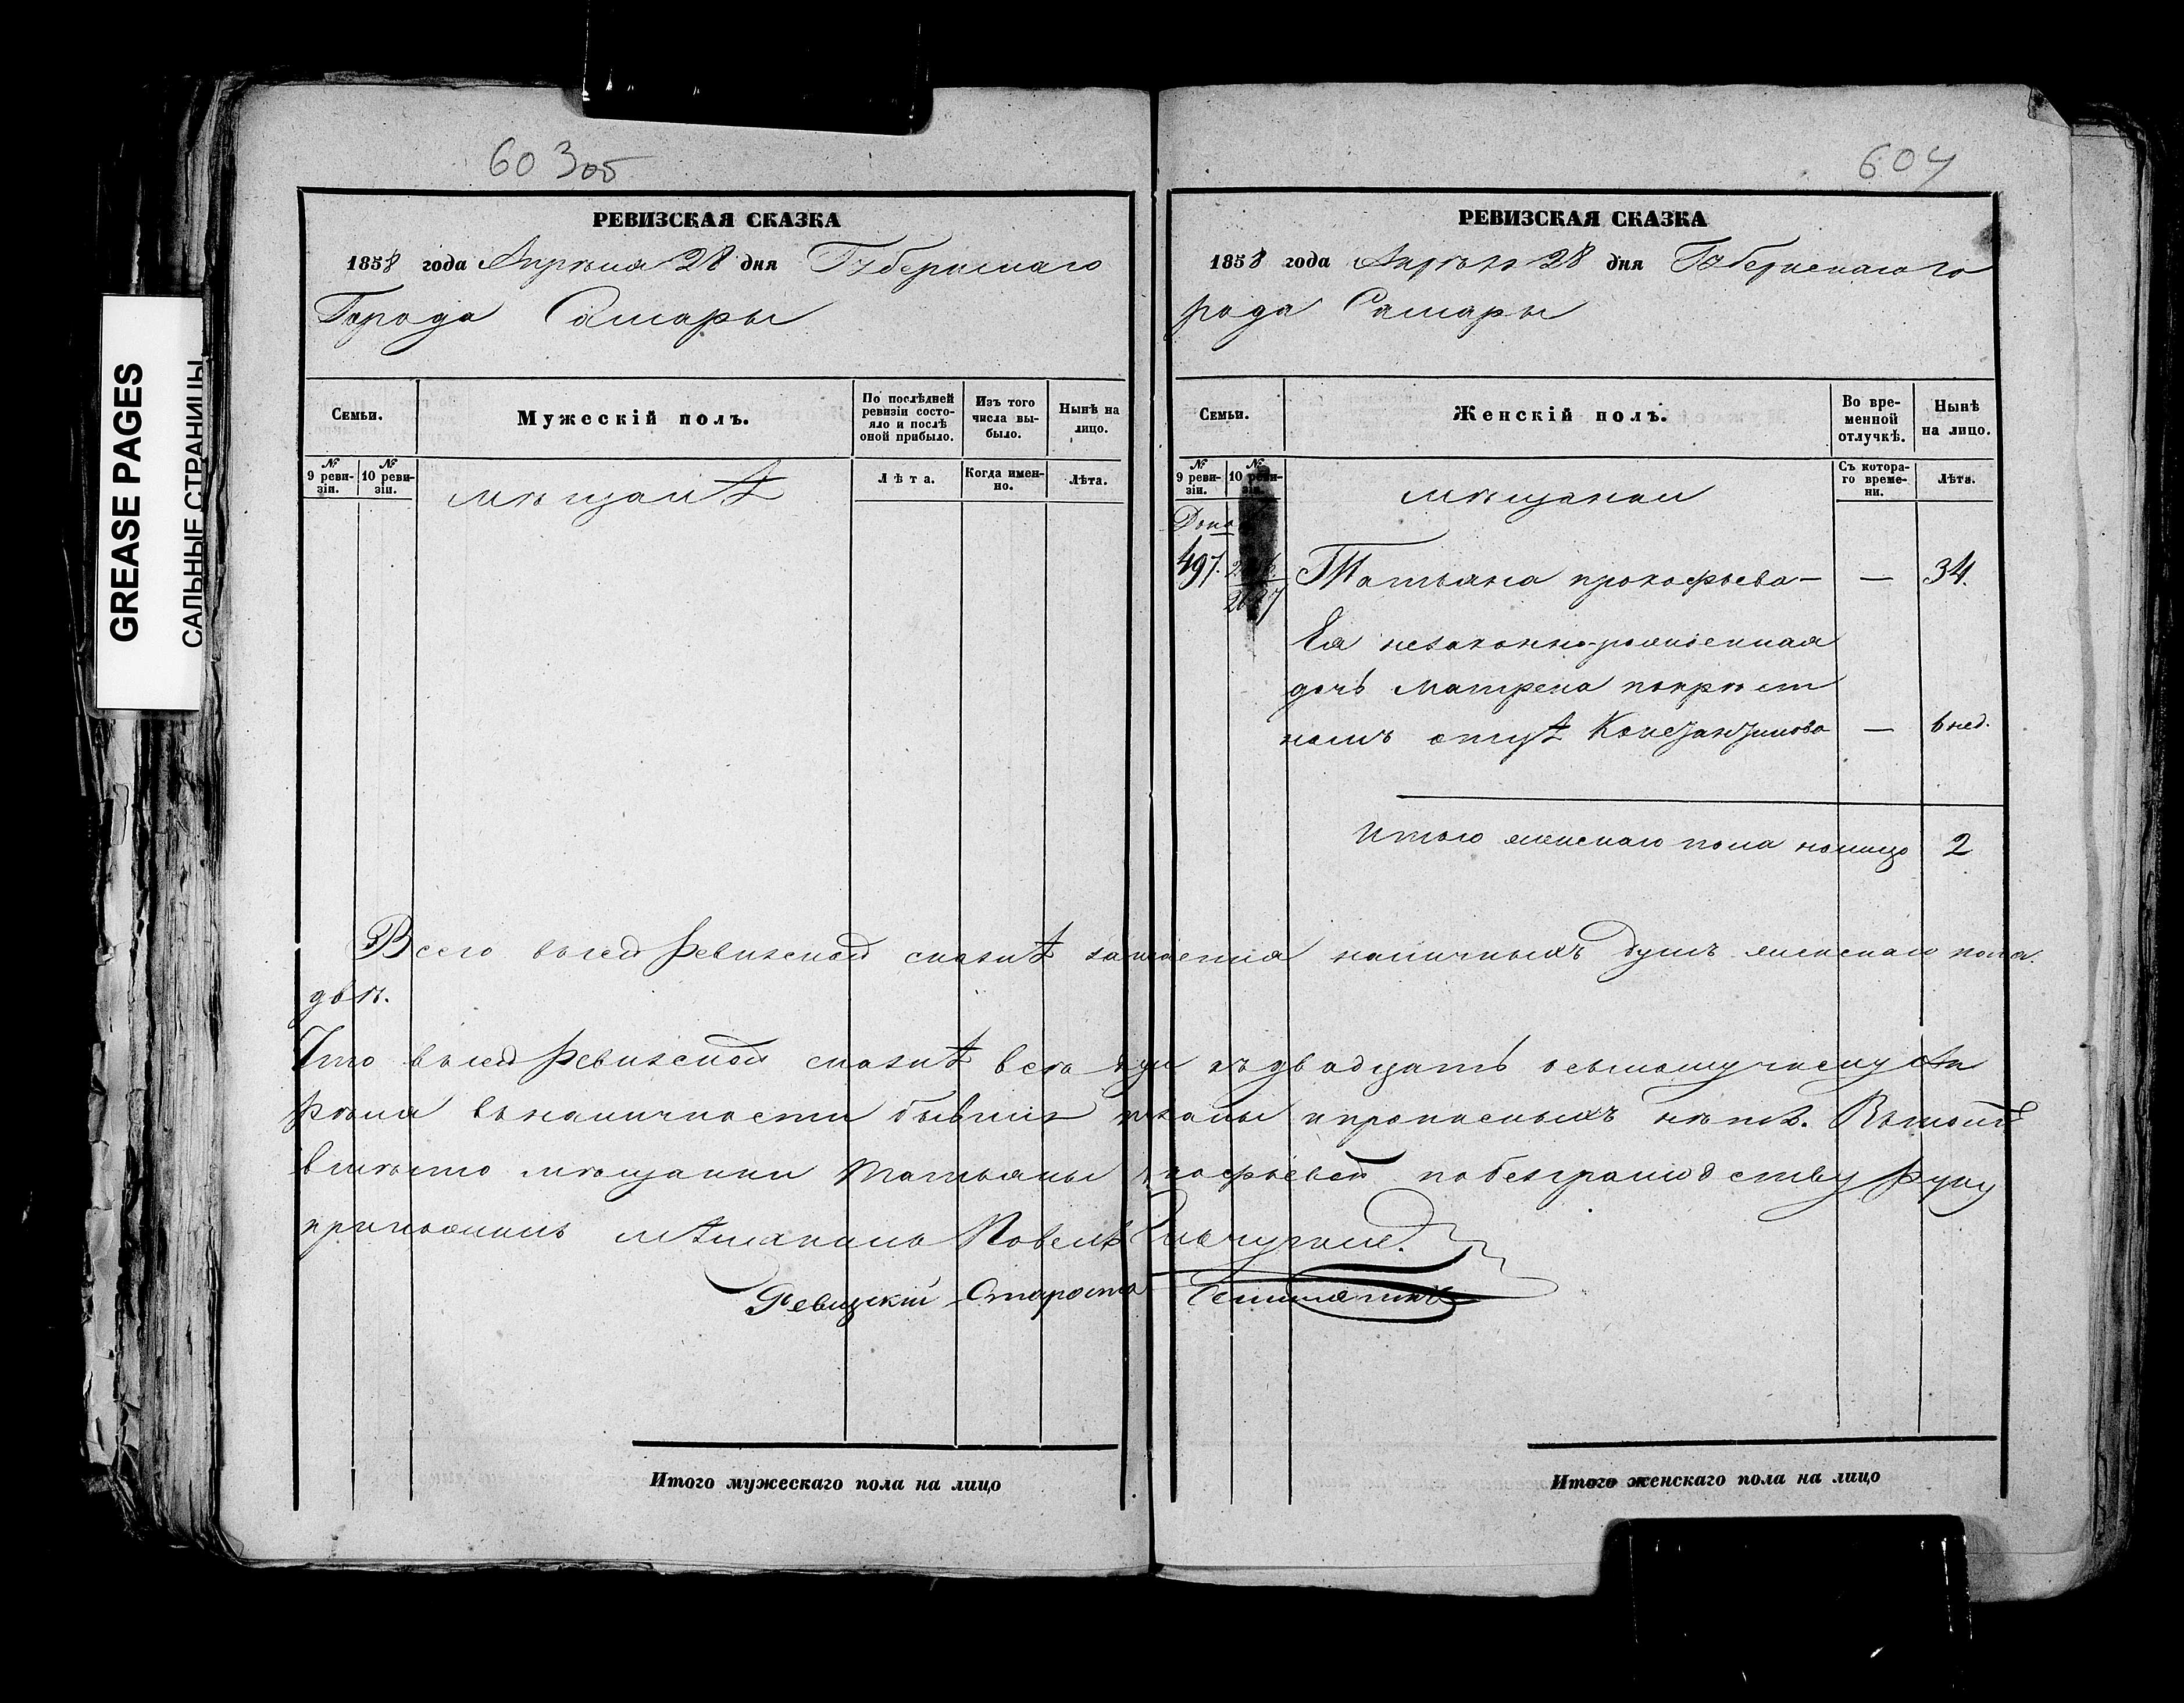 GREASE PAGES
САЛЬНЫЕ СТРАНИЦЫ
603об
РЕВИЗСКАЯ СКАЗКА
1858 года Апрѣля 28 дня Губернскаго
Города Самары
Семьи.
Мужескій полъ.
По послѣдней ревизіи состояло и послѣ оной прибыло.
Изъ того числа выбыло.
Нынѣ на лицо.
№ 9 ревизіи.
№ 10 ревизіи.
Лѣта.
Когда именно.
Лѣта.
604
РЕВИЗСКАЯ СКАЗКА
1858 года Апрѣля 28 дня Губернскаго го
рода Самары
Семьи.
Женскій полъ.
Во временной отлучкѣ.
Нынѣ на лицо.
№ 9 ревизіи.
№ 10 ревизіи.
мѣщанки
Съ котораго времени.
Лѣта.
Допо
497. Татьяна прокофьева — — 34.
Ея незаконно-рожденная
дочь Матрена покрѣст
номъ отцѣ Константинова — 6 нед.
Итого женскаго пола налицо 2
Всего въсей Ревизской сказкѣ наличныхъ душъ женскаго пола
двѣ.
Что въсей Ревизской сказкѣ всѣ къдвадцать осьмому числу Ап
рѣля въналичности бывшіе показаны ипрописныхъ нѣтъ. Вътомъ
вмѣсто мѣщанки Татьяны побезграмотству Руку
приложилъ мѣщанинъ Павелъ
Ревизскій Староста
Итого мужескаго пола на лицо
Итого женскаго пола на лицо